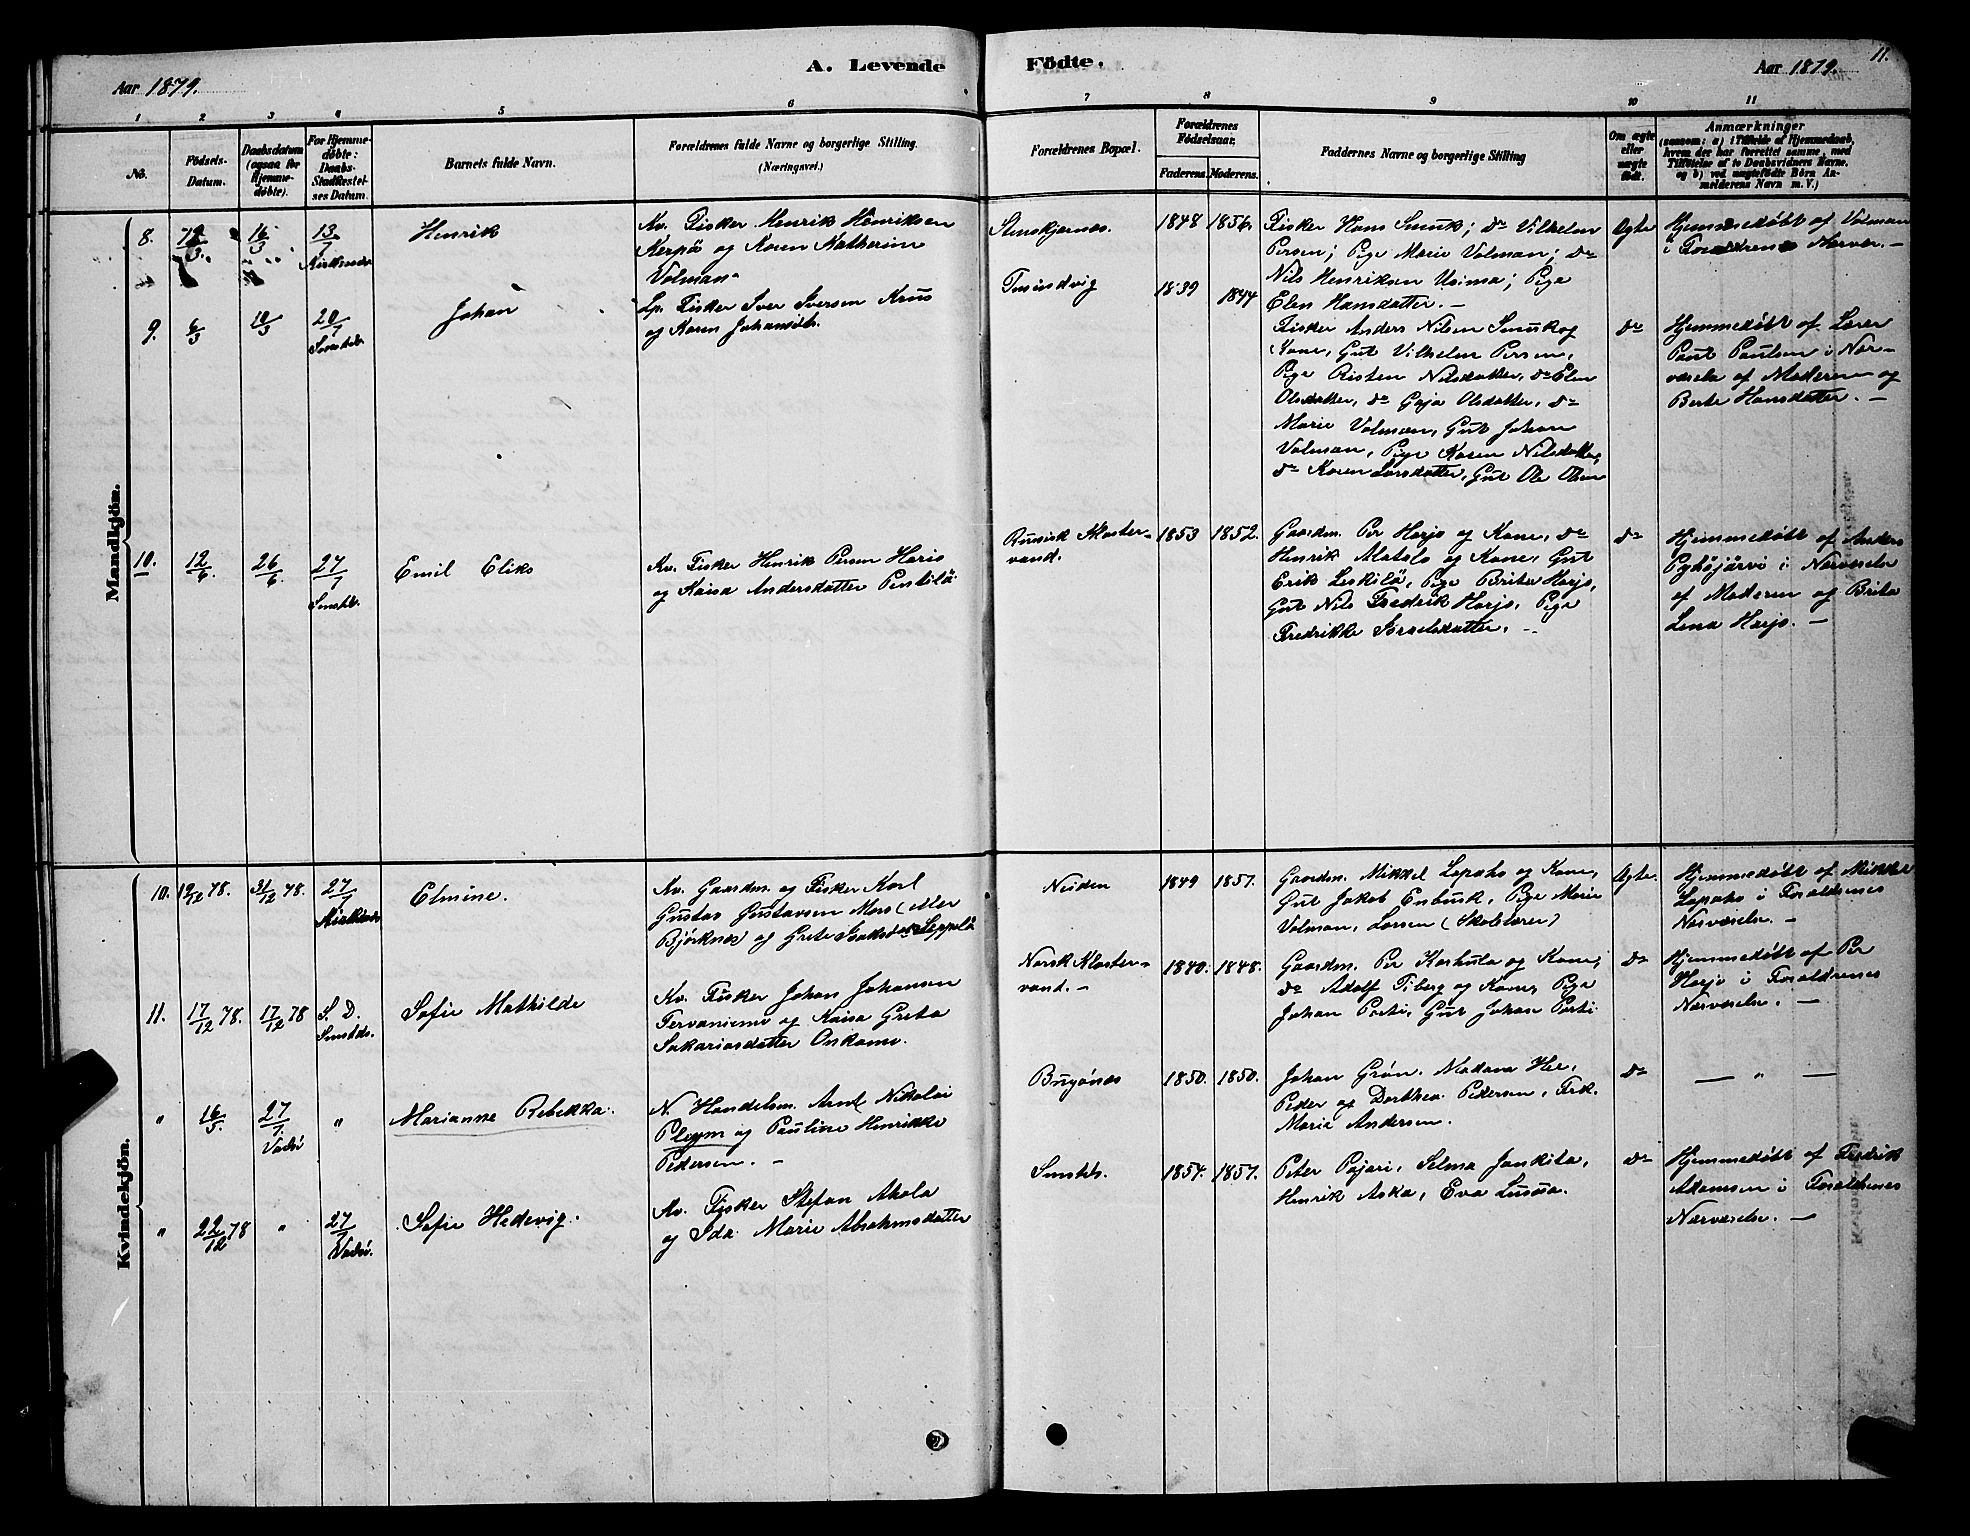 Aar 1879.
A. Levende
Födte.
Aar 1879.
11.
1 2 3 4 5 6 7 8 9 10 11
No.
Födsels-
Datum.
Daabsdatum
(ogsaa for
Hjemme-
døbte).
For Hjemme-
døbte:
Daabs-
Stadfæstel-
ses Datum.
Barnets fulde Navn.
Forældrenes fulde Navne og borgerlige Stilling.
(Næringsvei.)
Forældrenes Bopæl.
Forældrenes
Födselsaar.
Faderens. Moderens.
Faddernes Navne og borgerlige Stilling
Om ægte
eller
uægte
født.
Anmærkninger
(saasom: a) i Tilfælde af Hjemmedaab,
hvem der har forrettet samme, med
Tilføielse af to Daabsvidners Navne.
og b) ved uægtefødte Børn An-
melderens Navn m. V.)
Mandkjön.
8.
16/3
13/7
Henrik
Kv. Fisker Henrik Henriksen
Kerpö og Karen Katherine
Volman
1848 1856.
Fisker Hans Smuk; do Vilhelm
Persen; Pige Marie Volman; do
Nils Henriksen Usima; Pige
Elen Hansdatter. —
Ægte
Hjemmedøbt af Volman
i Forældrenes Nærvær. —
9. 6/3 10/3 20/7
Johan
Lp. Fisker Iver Iversen Krus
og Karen Johansdtr.
1839 1844
Fisker Anders Nilsen Smuk og
Kone, Gut Vilhelm Persen,
Pige Risten Nilsdatter, do Elen
Olsdatter, do Gaja Olsdatter, do
Marie Volman, Gut Johan
Volman, Pige Karen Nilsdatter,
do Karen Larsdatter, Gut Ole Olsen
do
Hjemmedøbt af Lærer
Paul Paulsen i Nær-
værelse af Moderen og
Berte Hansdatter. —
10. 12/6 26/6 27/7
Emil Eliks
Kv. Fisker Henrik Persen Harjo
og Kaisa Andersdatter Pentilö
Russisk Kloster-
vand.
1853 1852.
Gaardm. Per Harjo og Kone, do
Henrik Matalo og Kone, Gut
Erik Leskilö, Pige Brita Harjo,
Gut Nils Fredrik Harjo, Pige
Fredrikke Israelsdatter. —
do
Hjemmedøbt af Anders
Pyhöjärvi i Nærværelse
af Moderen og Brita
Lena Harjo. —
Kvindekjön.
10. 19/12 78. 31/12 78. 27/7
Elmine.
Kv. Gaardm. og Fisker Karl
Gustav Gustavsen Mors (eller
Bjørknes) og Grete Isaksdr Seppelä
Neiden
1849 1857.
Gaardm. Mikkel Lapaho og Kone,
Gut Jakob Enbusk, Pige Marie
Volman, Larsen (Skolelærer)
Ægte.
Hjemmedøbt af Mikkel
Lapaho i Forældrenes
Nærværelse. —
11. 17/12 78. 17/12 78 S. D.
Sofie Mathilde
Kv. Fisker Johan Johansen
Tervaniemi og Kaisa Greta
Sakariasdatter Onkamo.
Norsk Kloster-
vand. —
1840. 1848.
Gaardm. Per Karhula og Kone,
do Adolf Tiberg og Kone, Pige
Johan Porti, Gut Johan Porti
do
Hjemmedøbt af Per
Harjo i Forældrenes
Nærværelse. —
" 16/5. 27/7. Vadsö "
Marianne Rebekka.
N. Handelsm. Arnt Nikolai
Pleym og Pauline Henrikke
Pedersen. —
Bugönes
1850. 1850.
Johan Grøn. Madam Hee,
Peder og Dorthea Pedersen, Frk.
Marie Andersen.
do
— " —
" 22/12 78 " 27/7 Vadsö.
Sofie Hedevig.
Kv. Fisker Stefan Ahola
og Ida Marie Abrahamsdatter
1854. 1857.
Peter Pajari, Selma Jankila,
Henrik Aska, Eva Lusua.
do
Hjemmedøbt af Fredrik
Adamsen i Forældrenes
Nærværelse. —